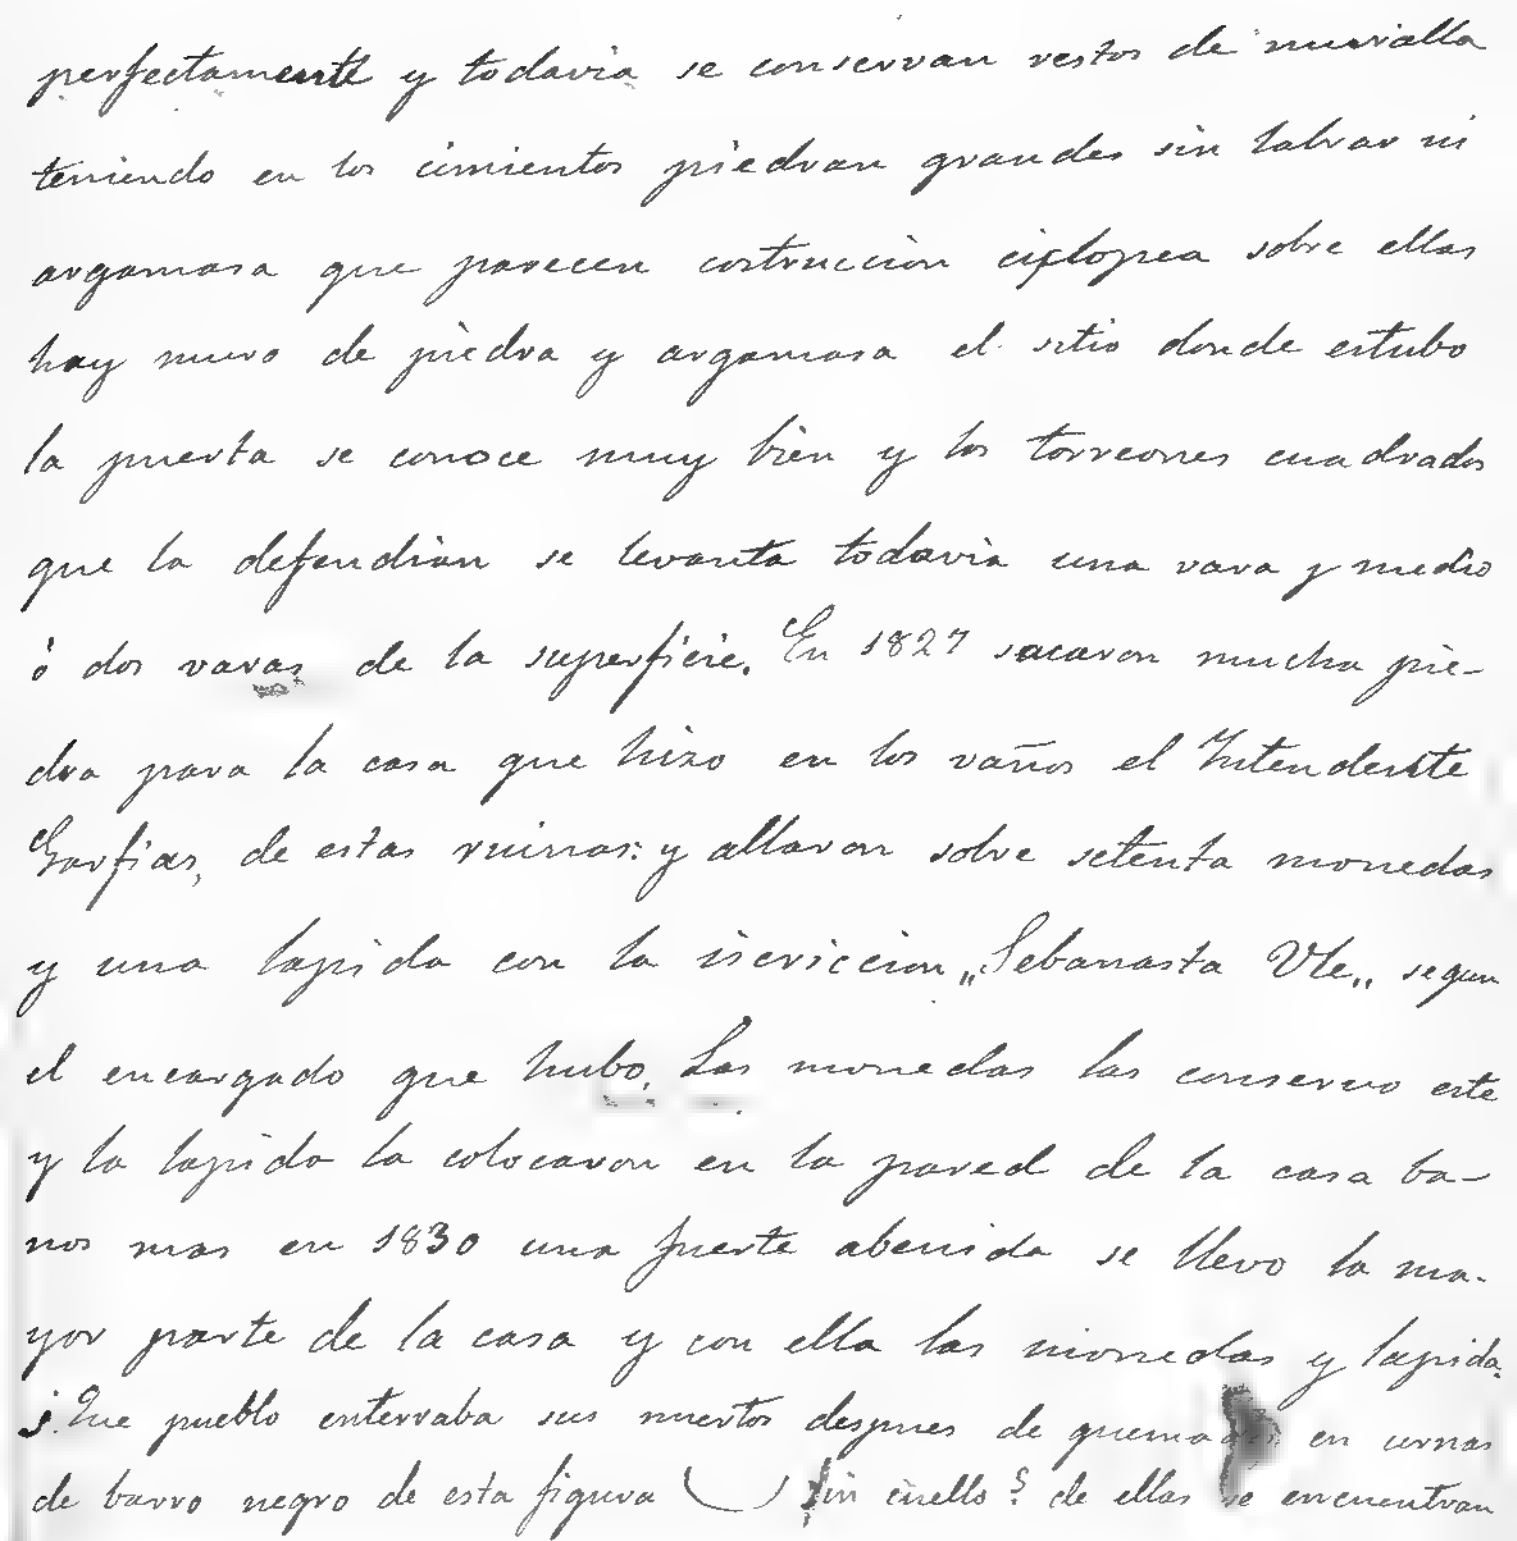 perfectamente y todavia se conservan restos de muralla
teniendo en los cimientos piedran grandes sin labrar ni
argamasa que parecen costruccion ciclopea sobre ellas
hay muro de piedra y argamasa el sitio donde estubo
la puerta se conoce muy bien y los torreones cuadrados
que la defendian se levanta todavia una vara y medio
ó dos varas de la superficie. En 1827 sacaron mucha pie-
dra para la casa que hizo en los vaños el Yntendente
Garfias, de estas ruinas: y allaron sobre setenta monedas
y una lapida con la iscriccion „Sebanasta Vle„ segun
el encargado que hubo. Las monedas las conservo este
y la lapida la colocaron en la pared de la casa ba-
nos mas en 1830 una fuerte abenida se llevo la ma-
yor parte de la casa y con ella las monedas y lapida.
¿Que pueblo enterraba sus muertos despues de quemados en urnas
de barro negro de esta figura sin cuello? de ellas se encuentran